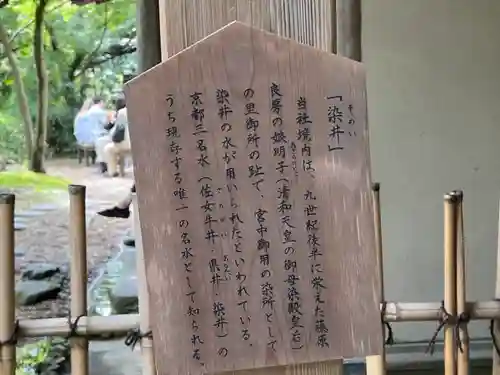 そめい
「染井」
当社境内は、九世紀後半に栄えた藤原
良房の娘明子（清和天皇の御母染殿皇后）
の里御所の趾で、宮中御用の染所として
染井の水が用いられたといわれる。
京都三名水（佐女牛井・県井・染井）の
うち現存する唯一の名水として知られる。